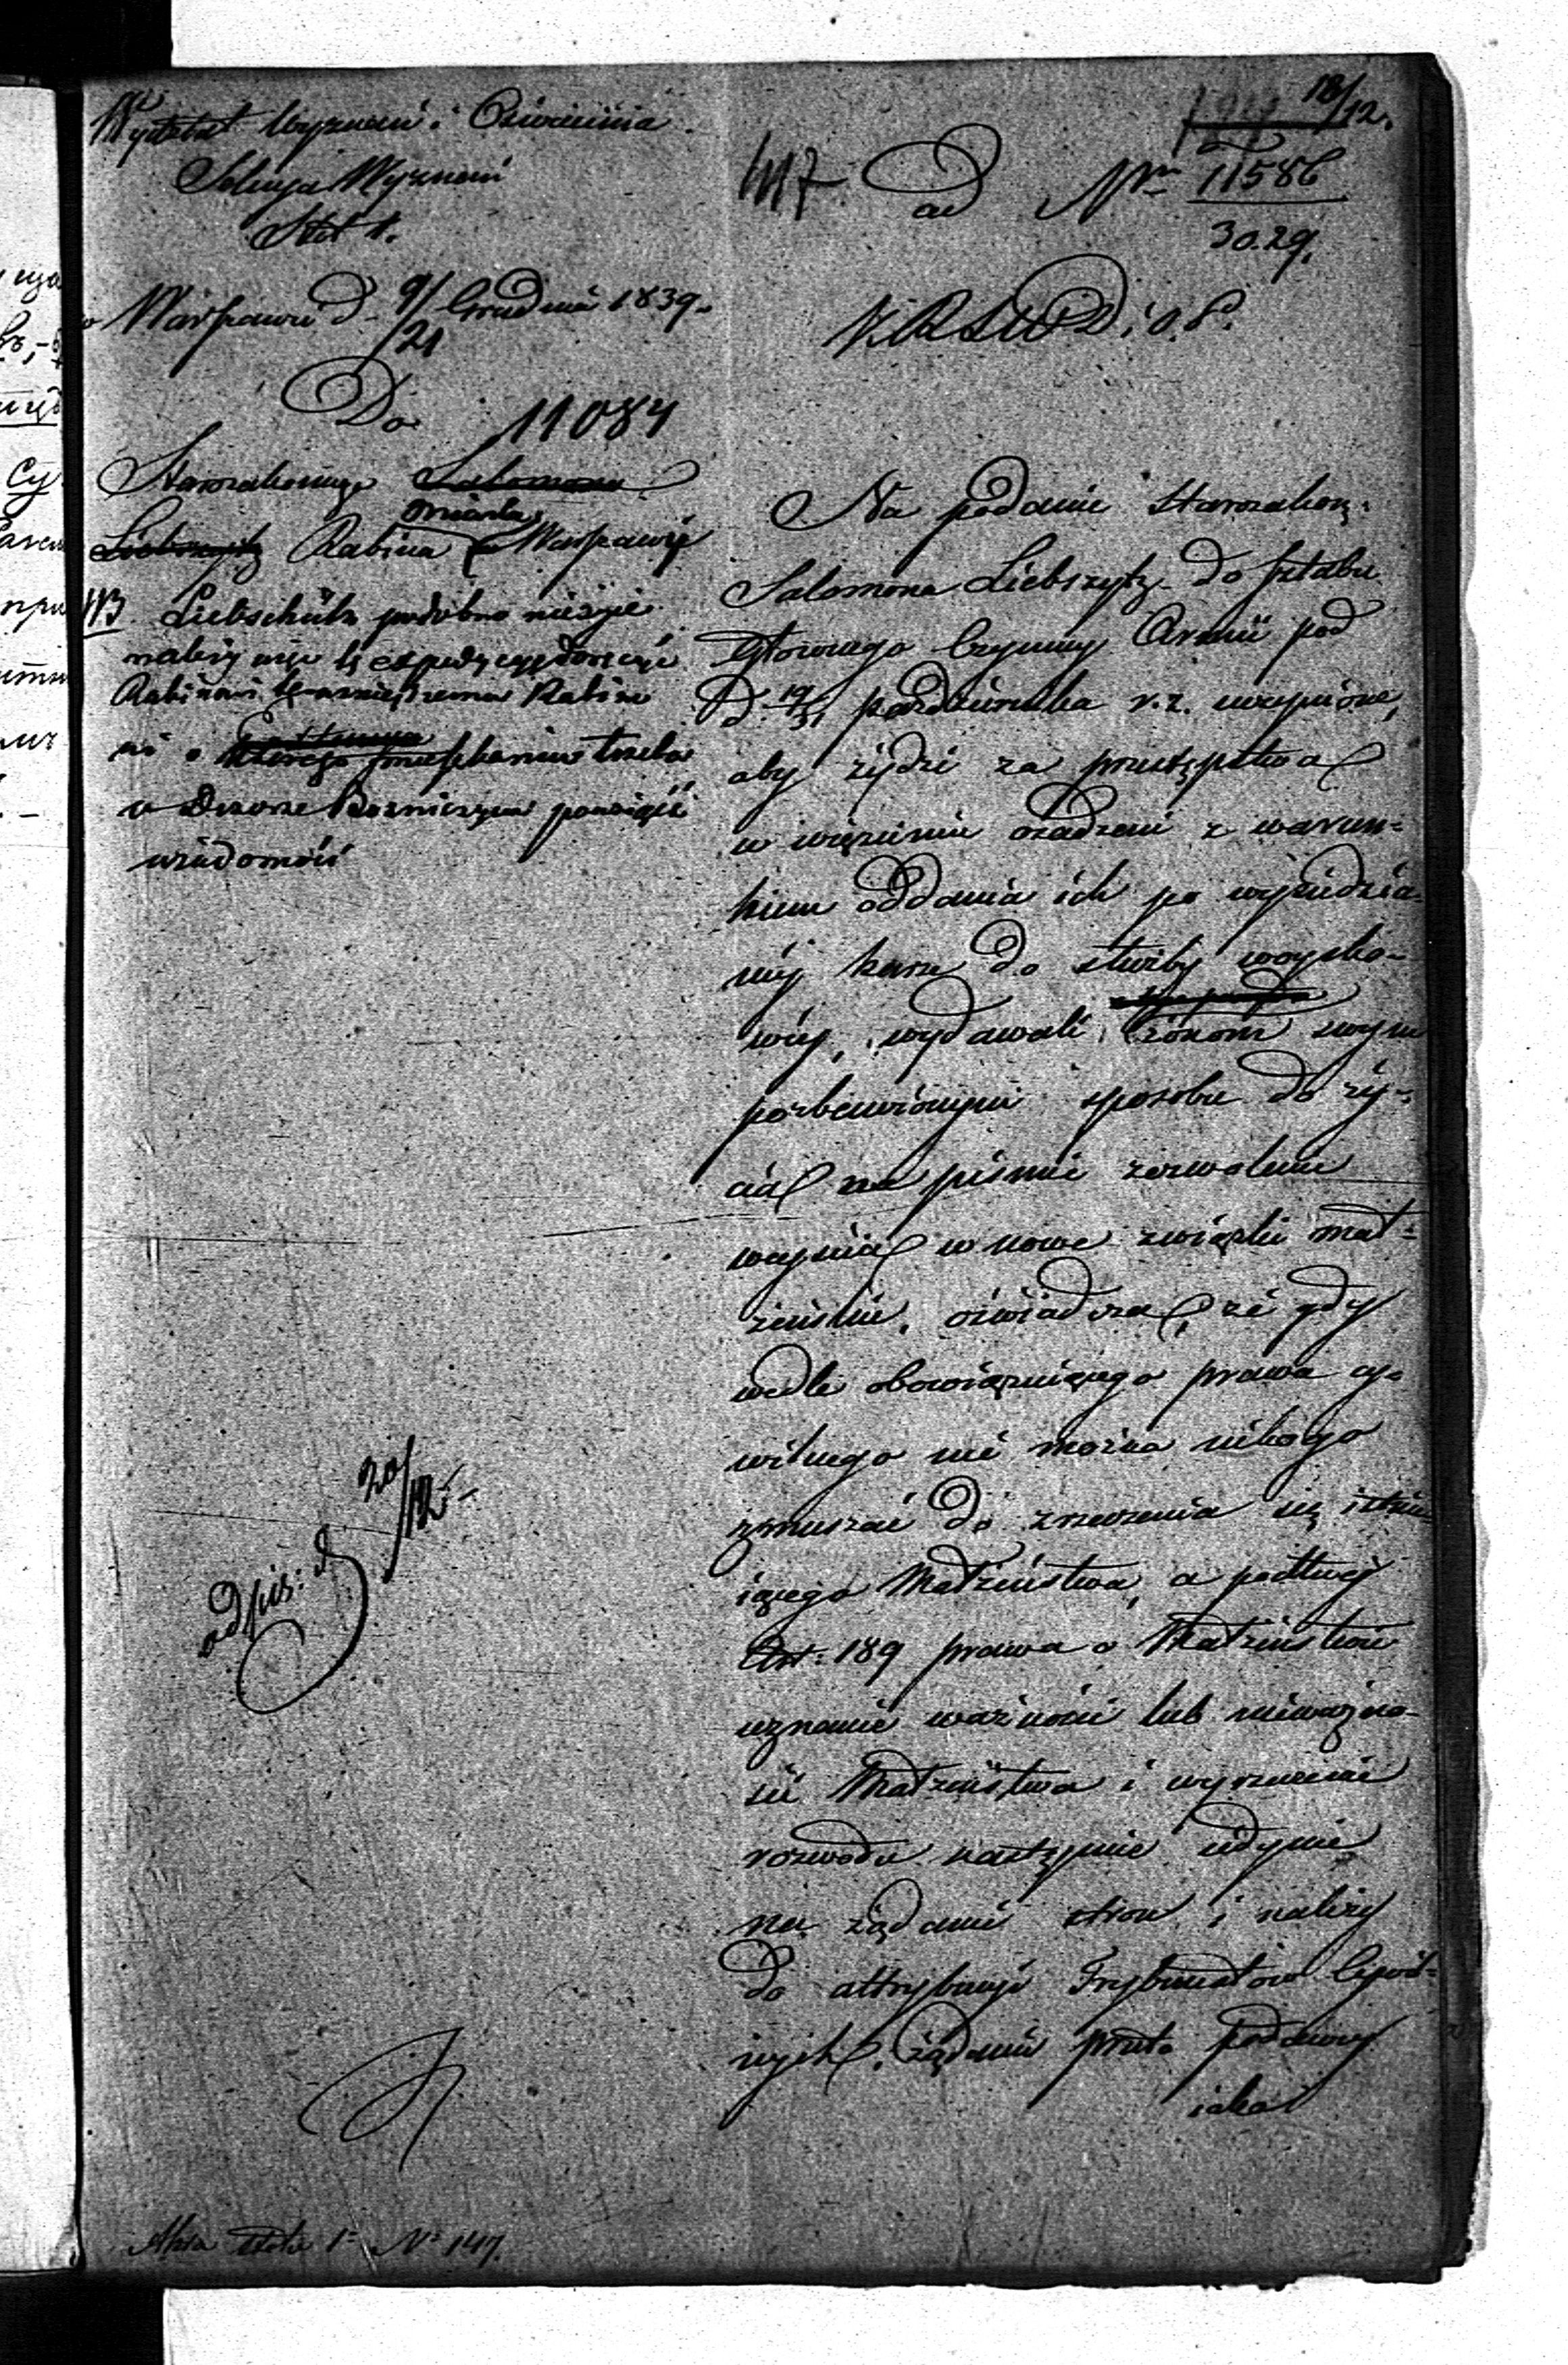 Wydział Wyznań i Oświecenia
Sekcya Wyznań
Stół 1.
Warszawa d. 9/21 Grudnia 1839.
Do 11084
Starozakonnego Salomona
Liebszytz Rabina miasta Warszawy
NB. Liebschütz podobno nieżyje
należy więc tę expedycyę doręczyć
Rabinowi
o mieszkaniu trzeba
w Dozorze Bożniczym powziąść
wiadomość
odpis: d 20/12
Akta Stołu 1 No 147.
18/12.
ad Nrm 11586
30.29.
K.R.S.W.D. i O.P.
Na podanie Starozakon:
Salomona Liebszytz do sztabu
Głównego Czynney Armii pod
d. 19/31 Października r.z. uczynione,
aby żydzi za przestępstwa
w więzieniu osadzeni z warun=
kiem oddania ich po wysiedzia-
néj karze do służby woysko-
wéy, wydawali żonom swym
pozbawionym sposobu do ży-
cia na piśmie zezwolenie
weyścia w nowe związki mał=
żeńskie, oświadcza, że gdy
wedle obowiązuiącego prawa cy-
wilnego nie można nikogo
zmuszać do zrzeczenia się istnie-
iącego Małżeństwa, a podług
Art: 189 prawa o Małżeństwie
uznanie ważności lub nieważno-
ści Małżeństwa i wyrzeczenie
rozwodu następuie iedynie
na żądanie stron i należy
do attrybucyi Trybunałów Cywil=
nych, żądanie przeto podawcy
iako